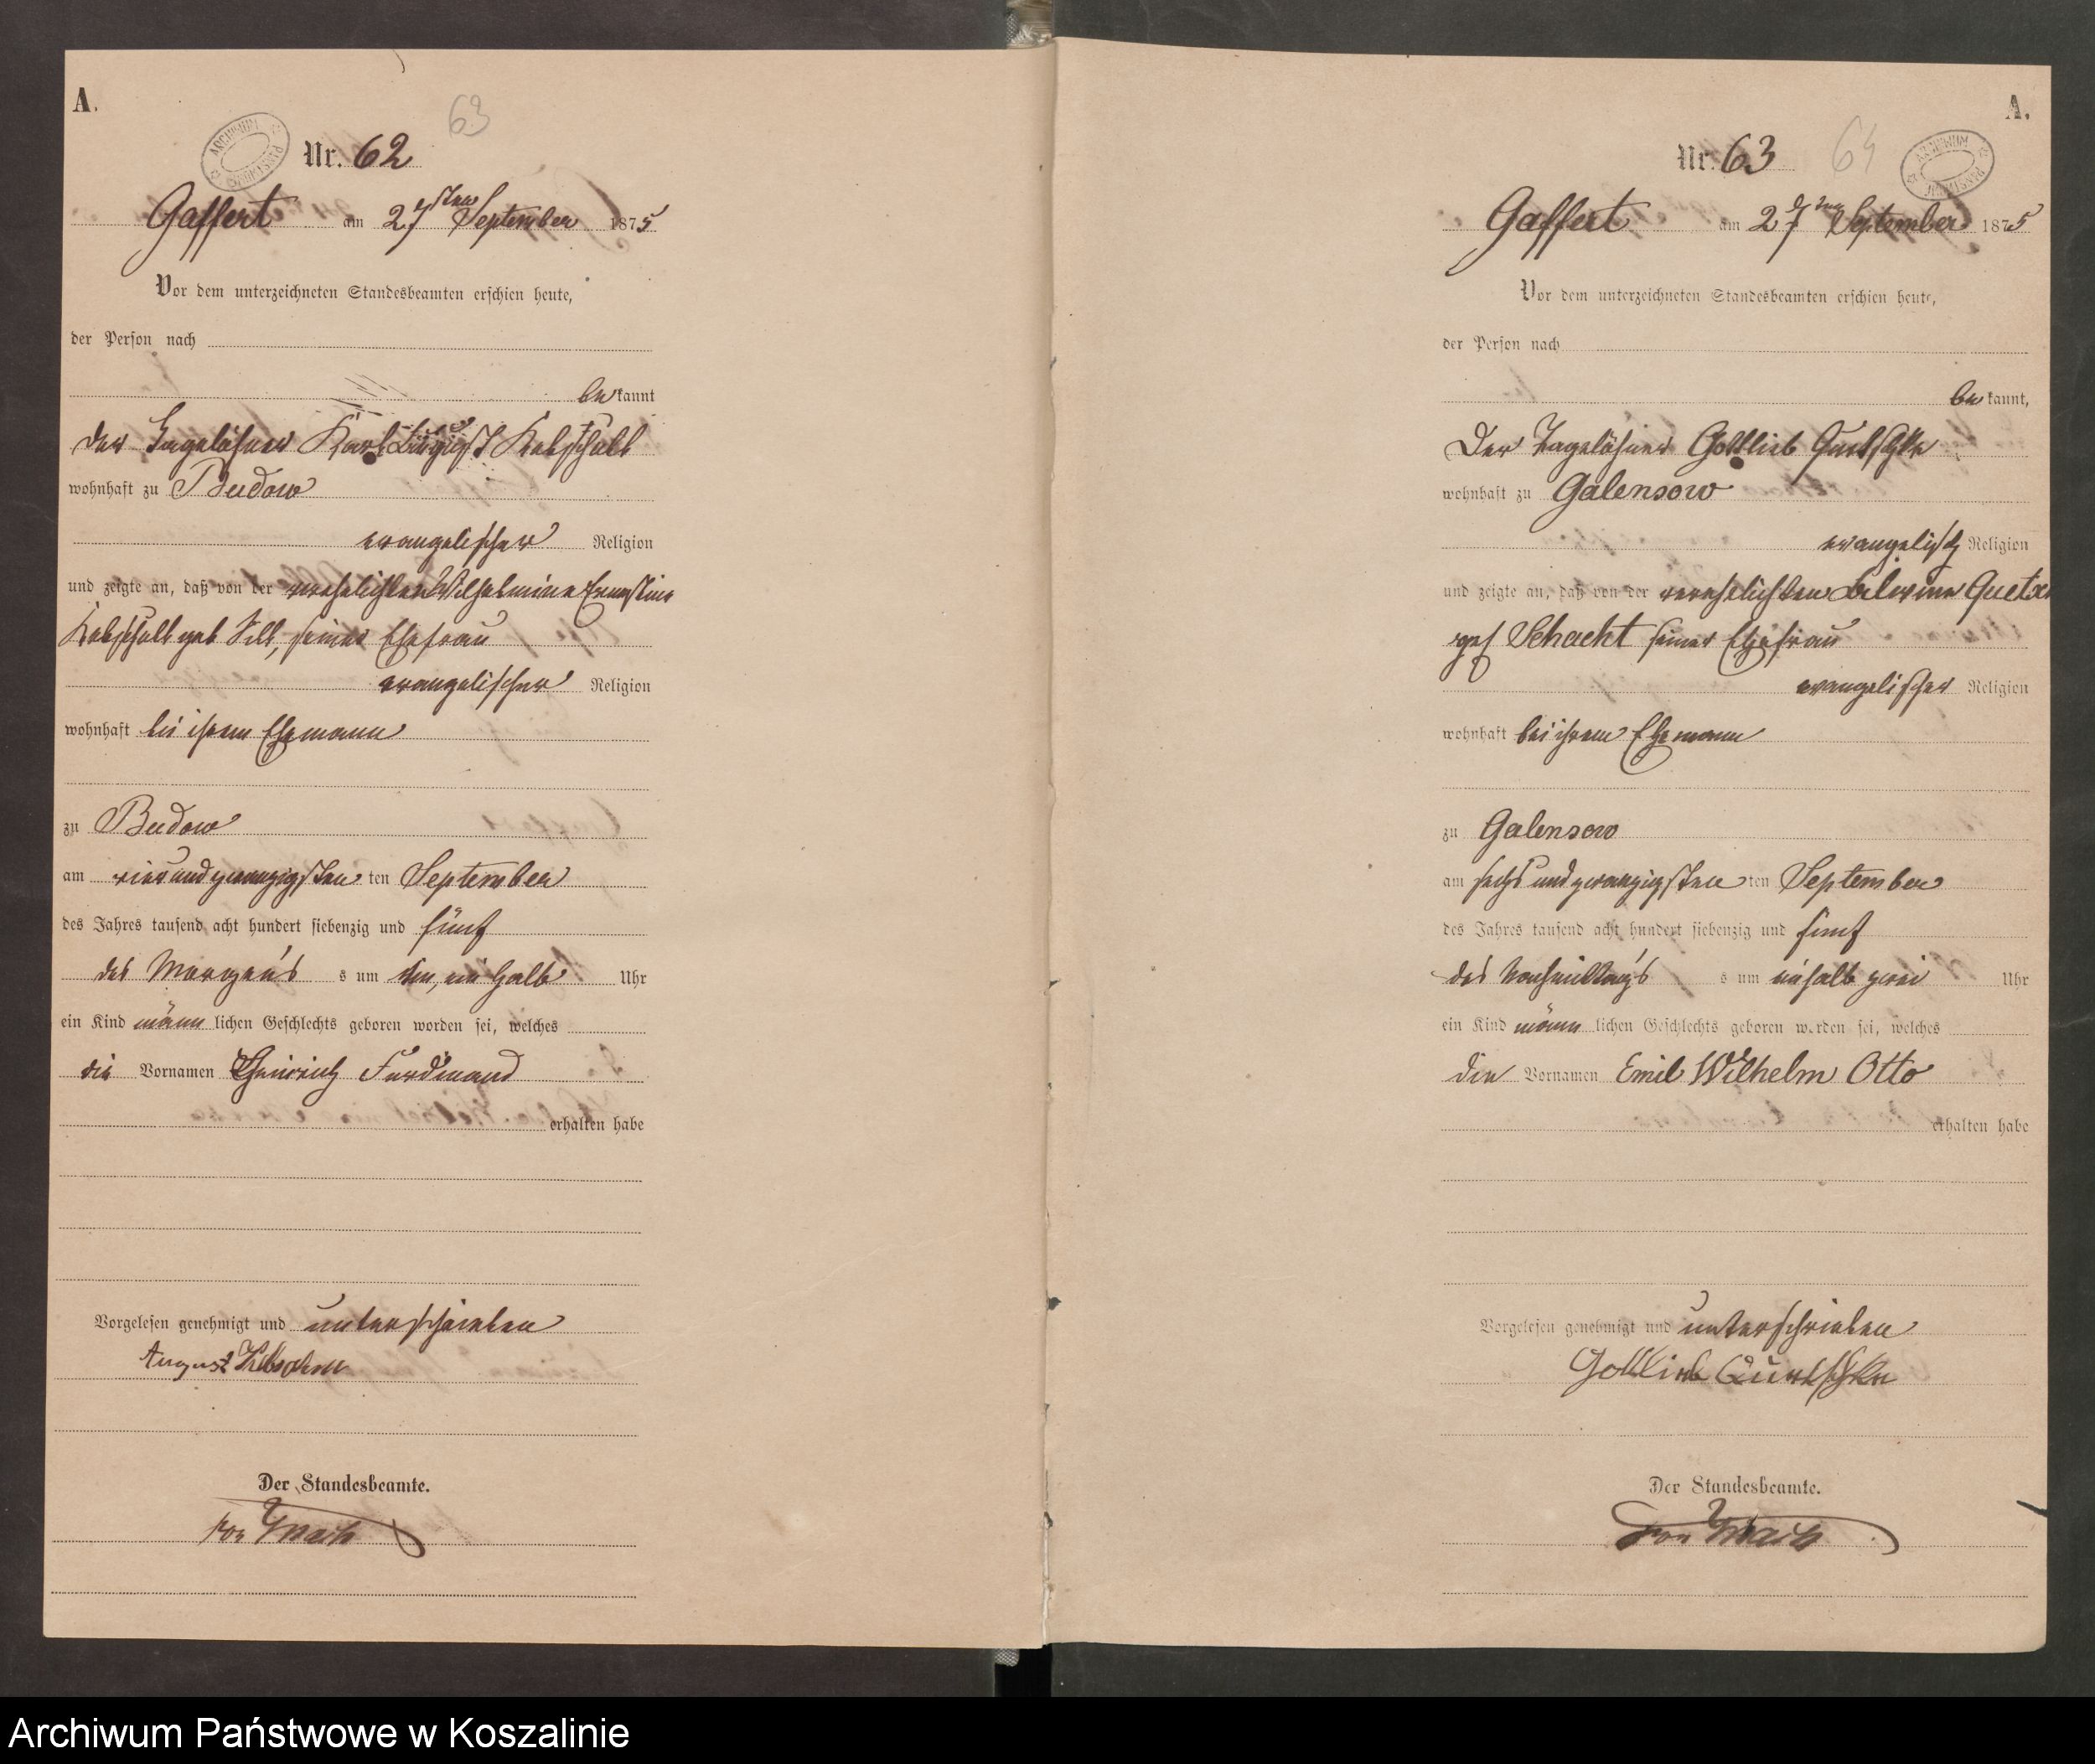 A.
63
Nr. 62
Gaffert am 27sten September 1875
Vor dem unterzeichneten Standesbeamten erschien heute,
der Person nach
be kannt
der Tagelöhner Karl
wohnhaft zu Budow
evangelischer Religion
und zeigte an, daß von der verehelichten Wilhelmine Ernestine
geb seiner Ehefrau
evangelischer Religion
wohnhaft bei ihrem Ehemann
zu Budow
am vierundzwanzigsten ten September
des Jahres tausend acht hundert siebenzig und fünf
des Morgens s um ein halb Uhr
ein Kind männ lichen Geschlechts geboren worden sei, welches
die Vornamen Heinrich Ferdinand
erhalten habe
Vorgelesen genehmigt und unterschrieben
August
Der Standesbeamte.
von
A.
64
Nr. 63
Gaffert am 27ten September 1875
Vor dem unterzeichneten Standesbeamten erschien heute,
der Person nach
be kannt,
Der Tagelöhner Gottlieb
wohnhaft zu Galensow
evangelisch Religion
und zeigte an, daß von der verehelichten
geb Schacht seiner Ehefrau
evangelischer Religion
wohnhaft bei ihrem Ehemann
zu Galensow
am sechsundzwanzigsten ten September
des Jahres tausend acht hundert siebenzig und fünf
des Nachmittags s um einhalb zwei Uhr
ein Kind männ lichen Geschlechts geboren worden sei, welches
den Vornamen Emil Wilhelm Otto
erhalten habe
Vorgelesen genehmigt und unterschrieben
Gottlieb
Der Standesbeamte.
von
Archiwum Państwowe w Koszalinie